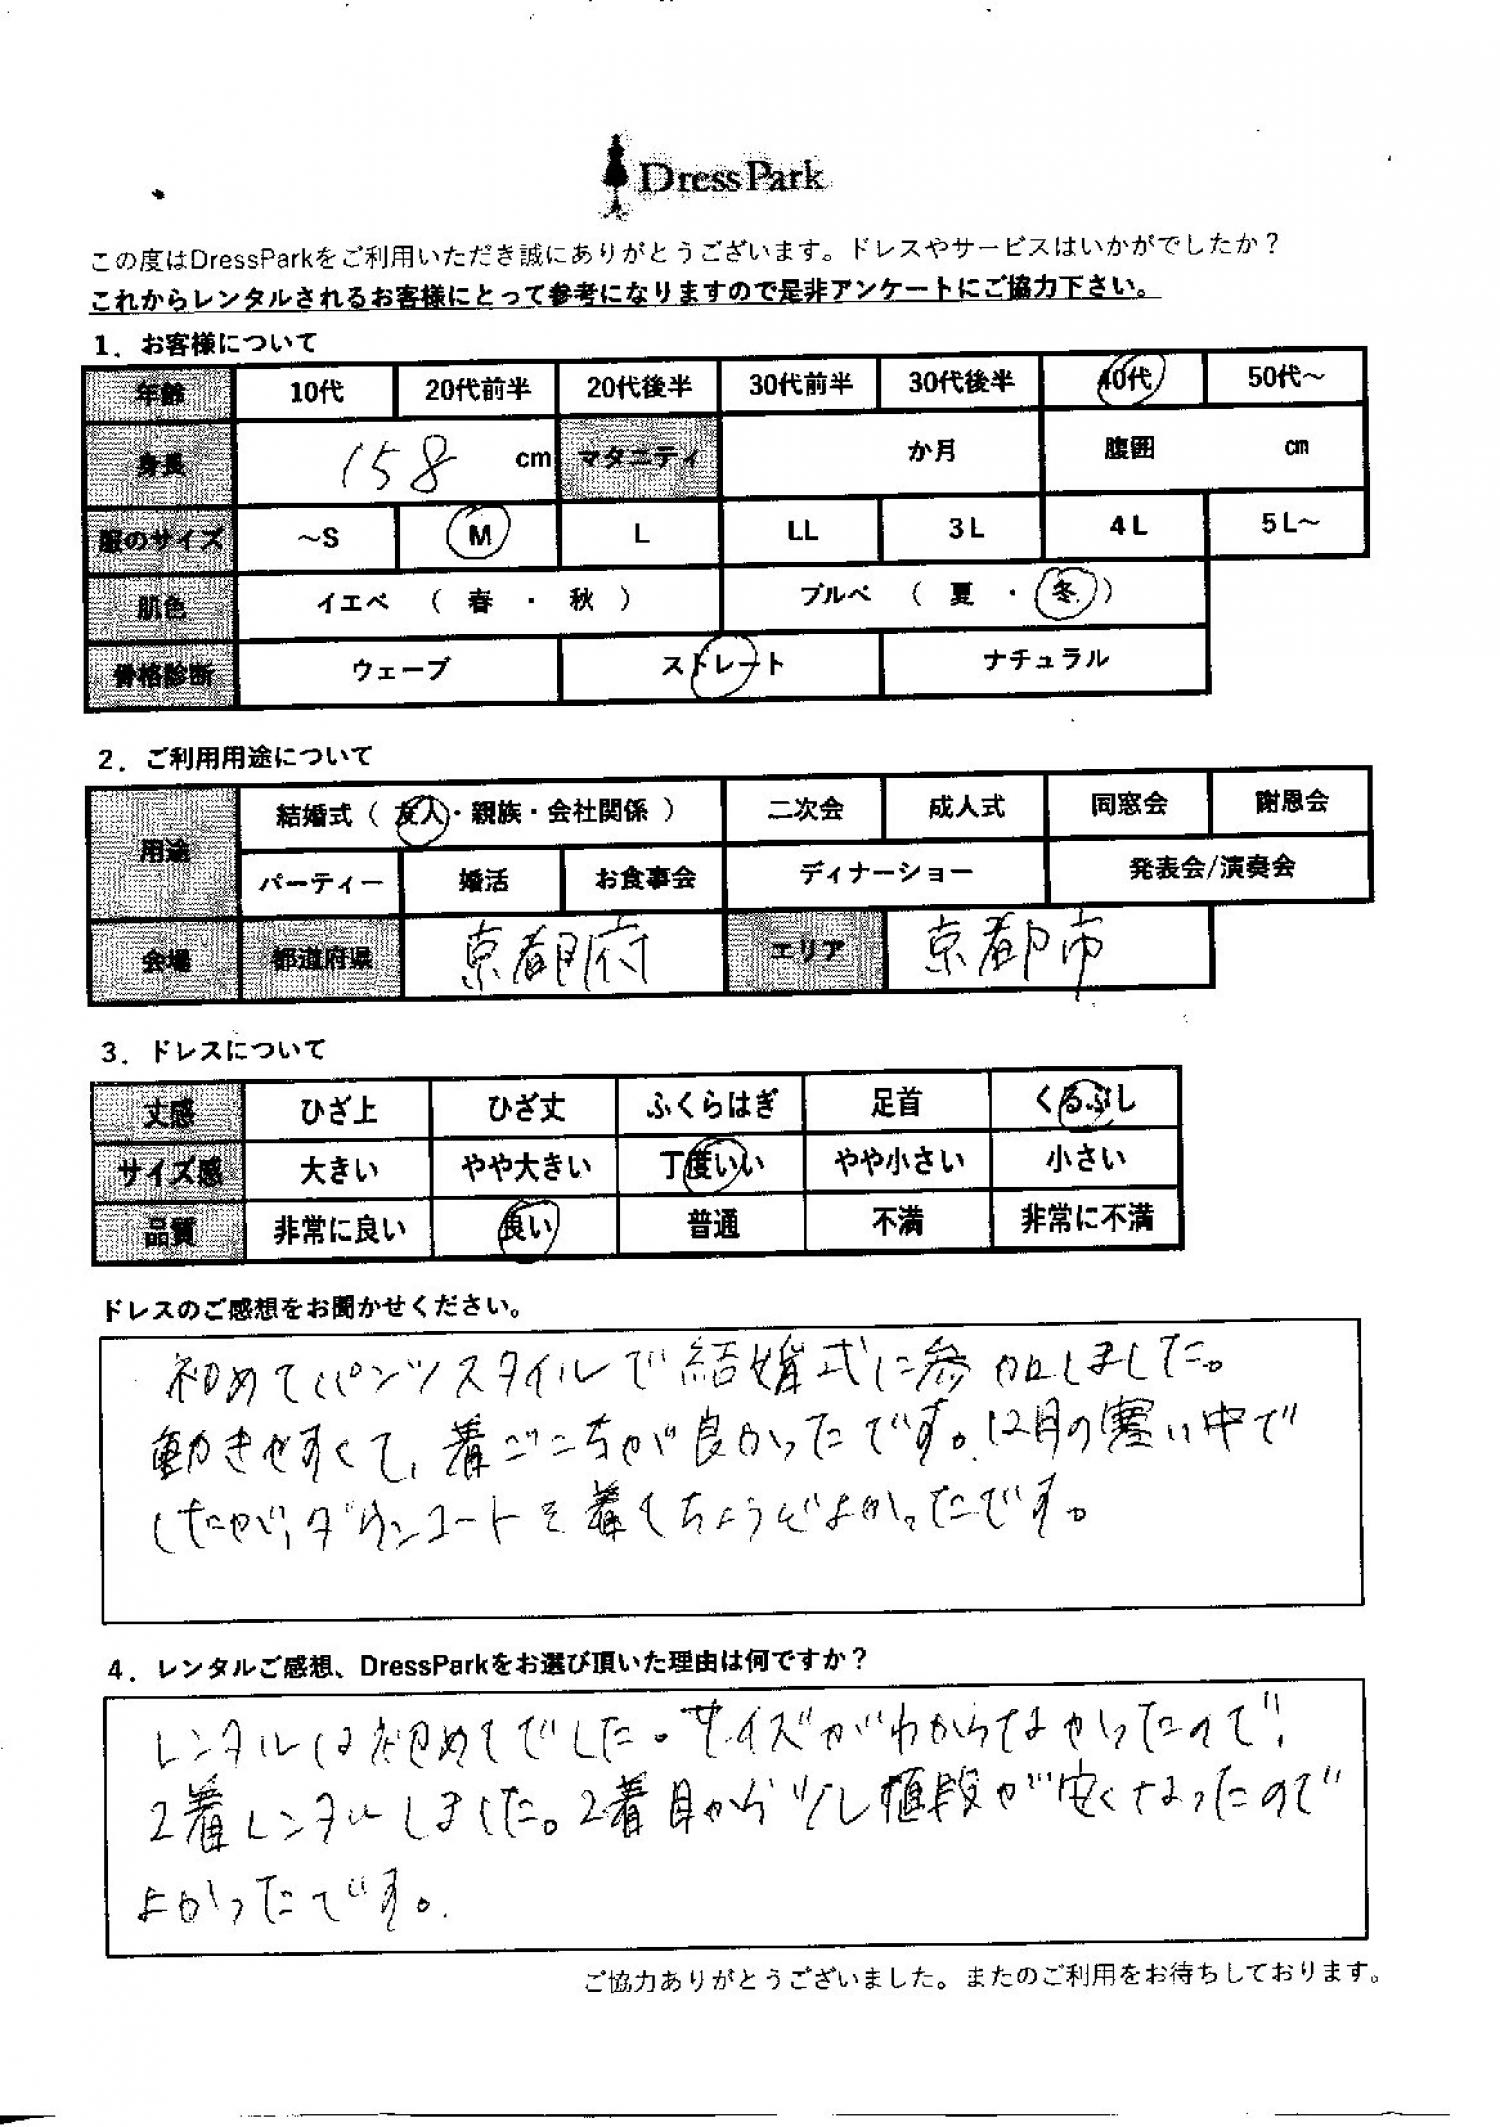 DressPark
この度はDressParkをご利用いただき誠にありがとうございます。ドレスやサービスはいかがでしたか？
これからレンタルされるお客様にとって参考になりますので是非アンケートにご協力下さい。
1．お客様について
年齢 10代 20代前半 20代後半 30代前半 30代後半 40代 50代～
身長 158 cm マタニティ か月 腹囲 cm
服のサイズ ～S M L LL 3L 4L 5L～
肌色 イエベ （ 春 ・ 秋 ） ブルベ （ 夏 ・ 冬 ）
骨格診断 ウェーブ ストレート ナチュラル
2．ご利用用途について
用途 結婚式（ 友人・親族・会社関係 ） 二次会 成人式 同窓会 謝恩会
パーティー 婚活 お食事会 ディナーショー 発表会/演奏会
会場 都道府県 京都府 エリア 京都市
3．ドレスについて
丈感 ひざ上 ひざ丈 ふくらはぎ 足首 くるぶし
サイズ感 大きい やや大きい 丁度いい やや小さい 小さい
品質 非常に良い 良い 普通 不満 非常に不満
ドレスのご感想をお聞かせください。
初めてパンツスタイルで結婚式に参加しました。
動きやすくて、着ごこちが良かったです。12月の寒い中で
したが、ダウンコートを着てちょうどよかったです。
4．レンタルご感想、DressParkをお選び頂いた理由は何ですか？
レンタルは初めてでした。サイズがわからなかったので、
2着レンタルしました。2着目から少し値段が安くなったので
よかったです。
ご協力ありがとうございました。またのご利用をお待ちしております。